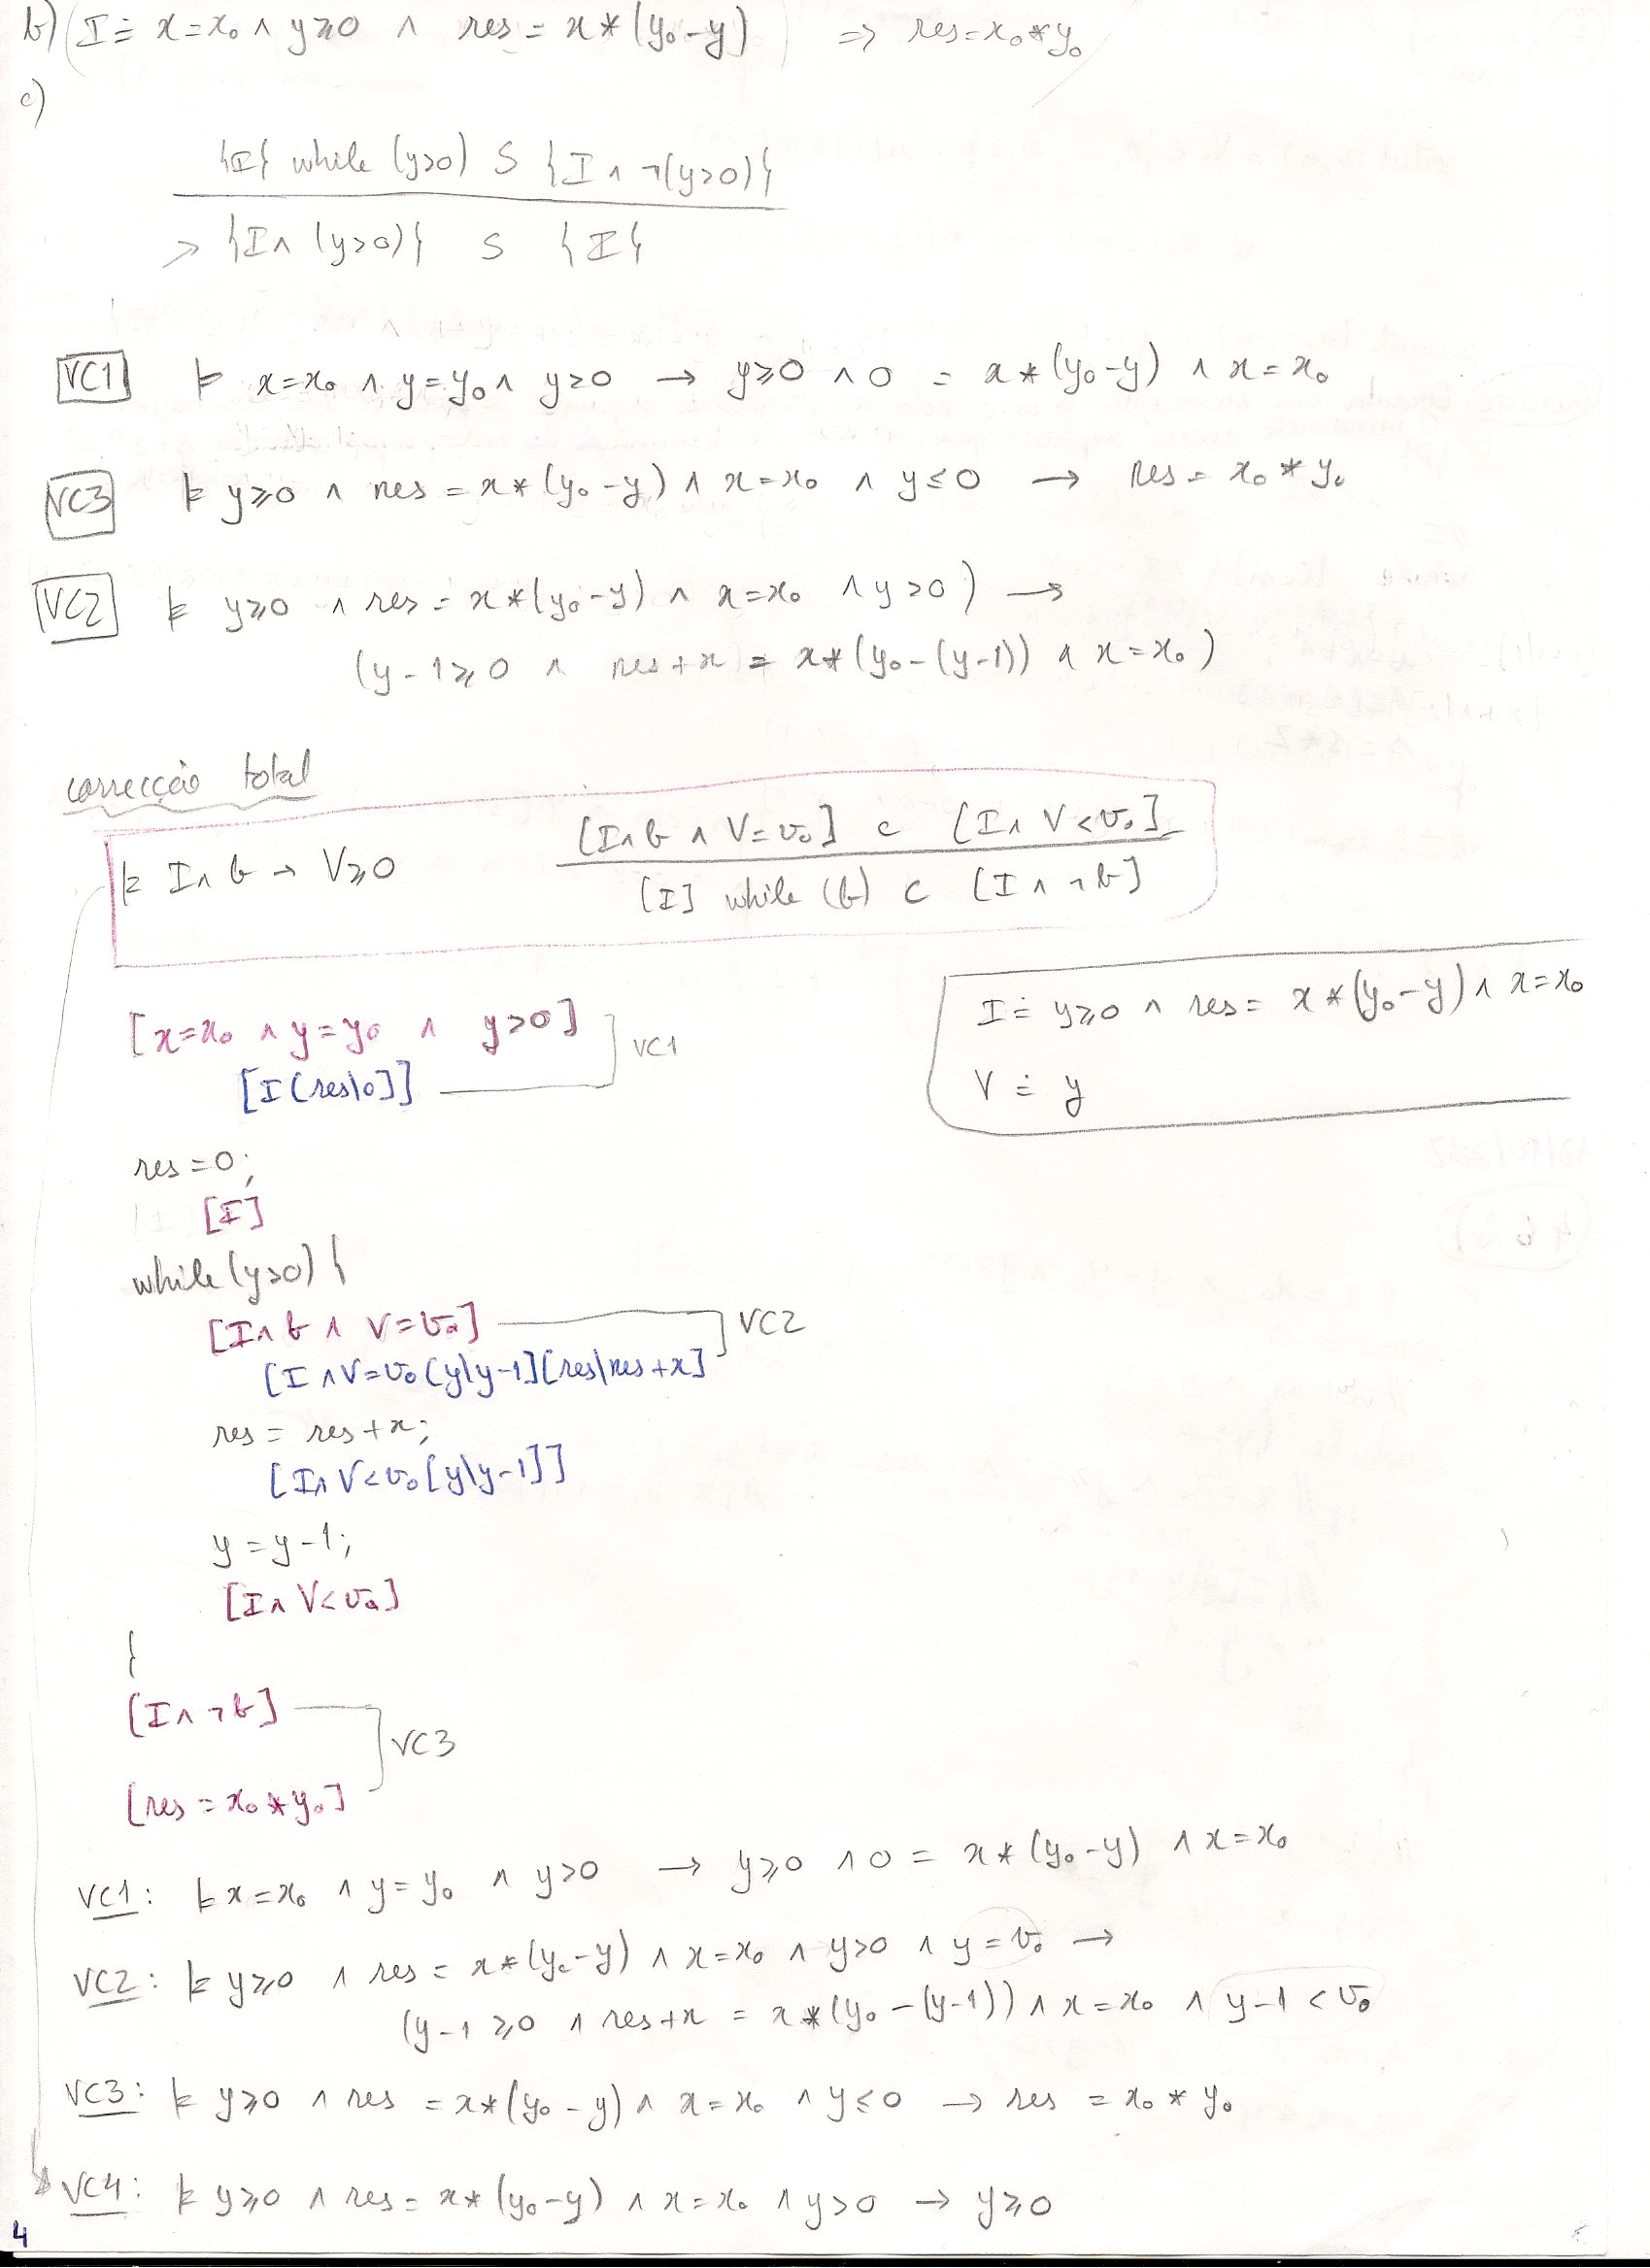 b) (I ≐ x = x₀ ∧ y ⩾ 0 ∧ res = x * (y₀ - y)) => res = x₀ * y₀
c)
{I} while (y>0) S {I ∧ ¬(y>0)}
> {I ∧ (y>0)} S {I}
VC1 ⊨ x = x₀ ∧ y = y₀ ∧ y>0 → y⩾0 ∧ 0 = x * (y₀ - y) ∧ x = x₀
VC3 ⊨ y⩾0 ∧ res = x * (y₀ - y) ∧ x = x₀ ∧ y ≤ 0 → res = x₀ * y₀
VC2 ⊨ y⩾0 ∧ res = x * (y₀ - y) ∧ x = x₀ ∧ y>0) →
(y - 1 ⩾ 0 ∧ res + x = x * (y₀ - (y-1)) ∧ x = x₀)
correcção total
[I ∧ b ∧ V = v₀] c [I ∧ V < v₀]
⊨ I ∧ b → V⩾0
[I] while (b) c [I ∧ ¬b]
I ≐ y⩾0 ∧ res = x * (y₀ - y) ∧ x = x₀
V ≐ y
[x = x₀ ∧ y = y₀ ∧ y>0]
VC1
[I [res\0]]
res = 0;
[I]
while (y>0) {
[I ∧ b ∧ V = v₀]
VC2
[I ∧ V = v₀ [y\y-1] [res\res + x]
res = res + x;
[I ∧ V < v₀ [y\y-1]]
y = y - 1;
[I ∧ V < v₀]
}
[I ∧ ¬b]
VC3
[res = x₀ * y₀]
VC1: ⊨ x = x₀ ∧ y = y₀ ∧ y>0 → y⩾0 ∧ 0 = x * (y₀ - y) ∧ x = x₀
VC2: ⊨ y⩾0 ∧ res = x * (y₀ - y) ∧ x = x₀ ∧ y>0 ∧ y = v₀ →
(y - 1 ⩾ 0 ∧ res + x = x * (y₀ - (y-1)) ∧ x = x₀ ∧ y - 1 < v₀
VC3: ⊨ y⩾0 ∧ res = x * (y₀ - y) ∧ x = x₀ ∧ y ≤ 0 → res = x₀ * y₀
VC4: ⊨ y⩾0 ∧ res = x * (y₀ - y) ∧ x = x₀ ∧ y>0 → y⩾0
4